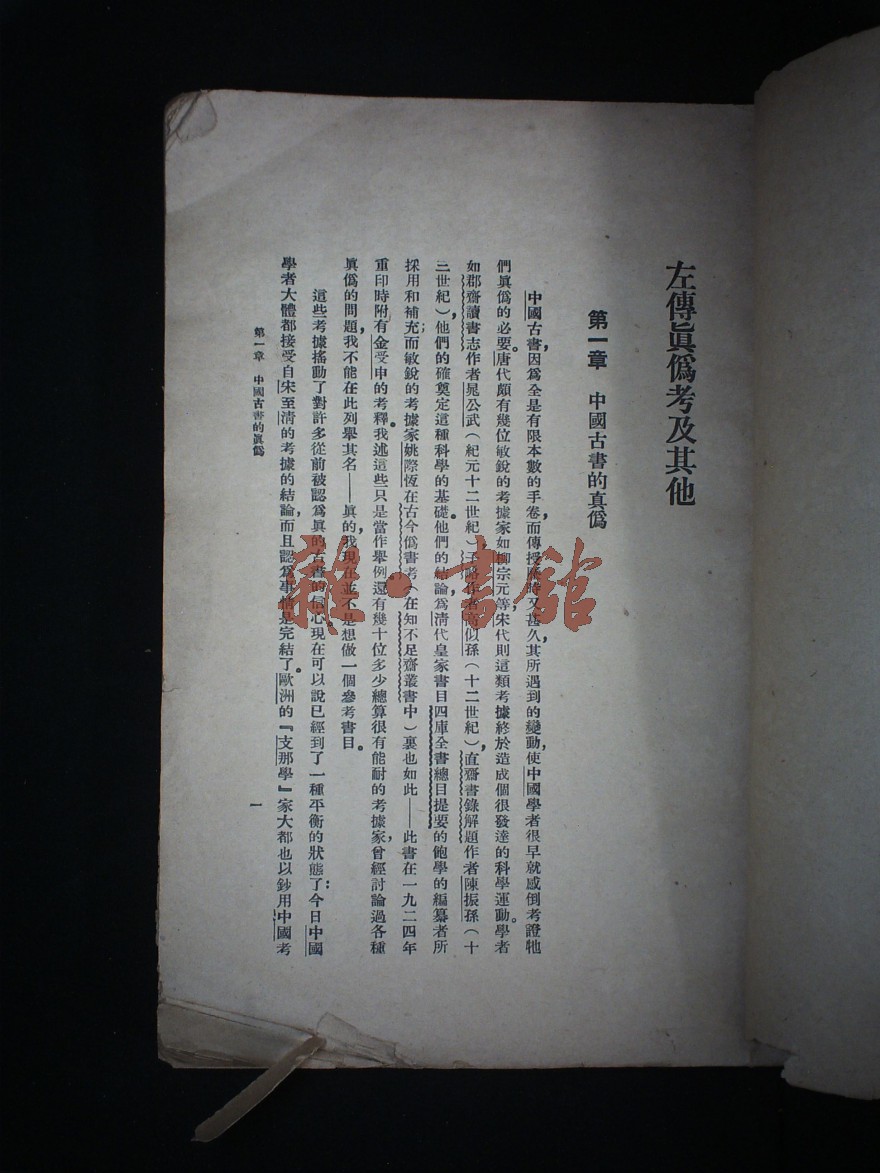 左傳眞僞考及其他
第一章　中國古書的真僞
中國古書，因爲全是有限本數的手卷，而傳授歷時又甚久，其所遇到的變動，使中國學者很早就感倒考證牠
們眞僞的必要。唐代頗有幾位敏銳的考據家，如柳宗元等；宋代則這類考據終於造成個很發達的科學運動。學者
如郡齋讀書志作者晁公武（紀元十二世紀），子略作者高似孫（十二世紀），直齋書錄解題作者陳振孫（十
三世紀），他們的確奠定這種科學的基礎。他們的結論爲清代皇家書目四庫全書總目提要的飽學的編纂者所
採用和補充；而敏銳的考據家姚際恆在古今僞書考（在知不足齋叢書中）裏也如此——此書在一九二四年
重印時附有金受申的考釋。我述這些只是當作舉例，還有幾十位多少總算很有能耐的考據家，曾經討論過各種
眞僞的問題，我不能在此列舉其名——眞的，我現在並不是想做一個參考書目。
這些考據搖動了對許多從前被認爲眞的古書的信心，現在可以說已經到了一種平衡的狀態了：今日中國
學者大體都接受自宋至清的考據的結論，而且認爲事情是完結了。歐洲的『支那學』家大都也以鈔用中國考
第一章　中國古書的眞僞
一
雜·書館